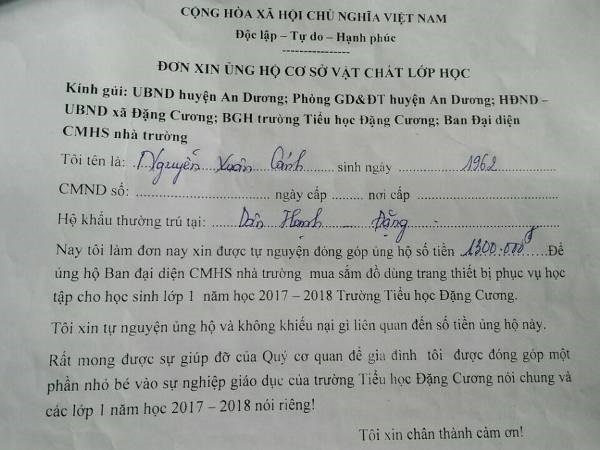 CỘNG HÒA XÃ HỘI CHỦ NGHĨA VIỆT NAM
Độc lập – Tự do – Hạnh phúc
ĐƠN XIN ỦNG HỘ CƠ SỞ VẬT CHẤT LỚP HỌC
Kính gửi: UBND huyện An Dương; Phòng GD&ĐT huyện An Dương; HĐND –
UBND xã Đặng Cương; BGH trường Tiểu học Đặng Cương; Ban Đại diện
CMHS nhà trường
Tôi tên là: Nguyễn Xuân Cánh sinh ngày 1962
CMND số: ngày cấp nơi cấp
Hộ khẩu thường trú tại: Đặng
Nay tôi làm đơn nay xin được tự nguyện đóng góp ủng hộ số tiền 1300.000đ Để
ủng hộ Ban đại diện CMHS nhà trường mua sắm đồ dùng trang thiết bị phục vụ học
tập cho học sinh lớp 1 năm học 2017 – 2018 Trường Tiểu học Đặng Cương.
Tôi xin tự nguyện ủng hộ và không khiếu nại gì liên quan đến số tiền ủng hộ này.
Rất mong được sự giúp đỡ của Quý cơ quan để gia đình tôi được đóng góp một
phần nhỏ bé vào sự nghiệp giáo dục của trường Tiểu học Đặng Cương nói chung và
các lớp 1 năm học 2017 – 2018 nói riêng!
Tôi xin chân thành cảm ơn!